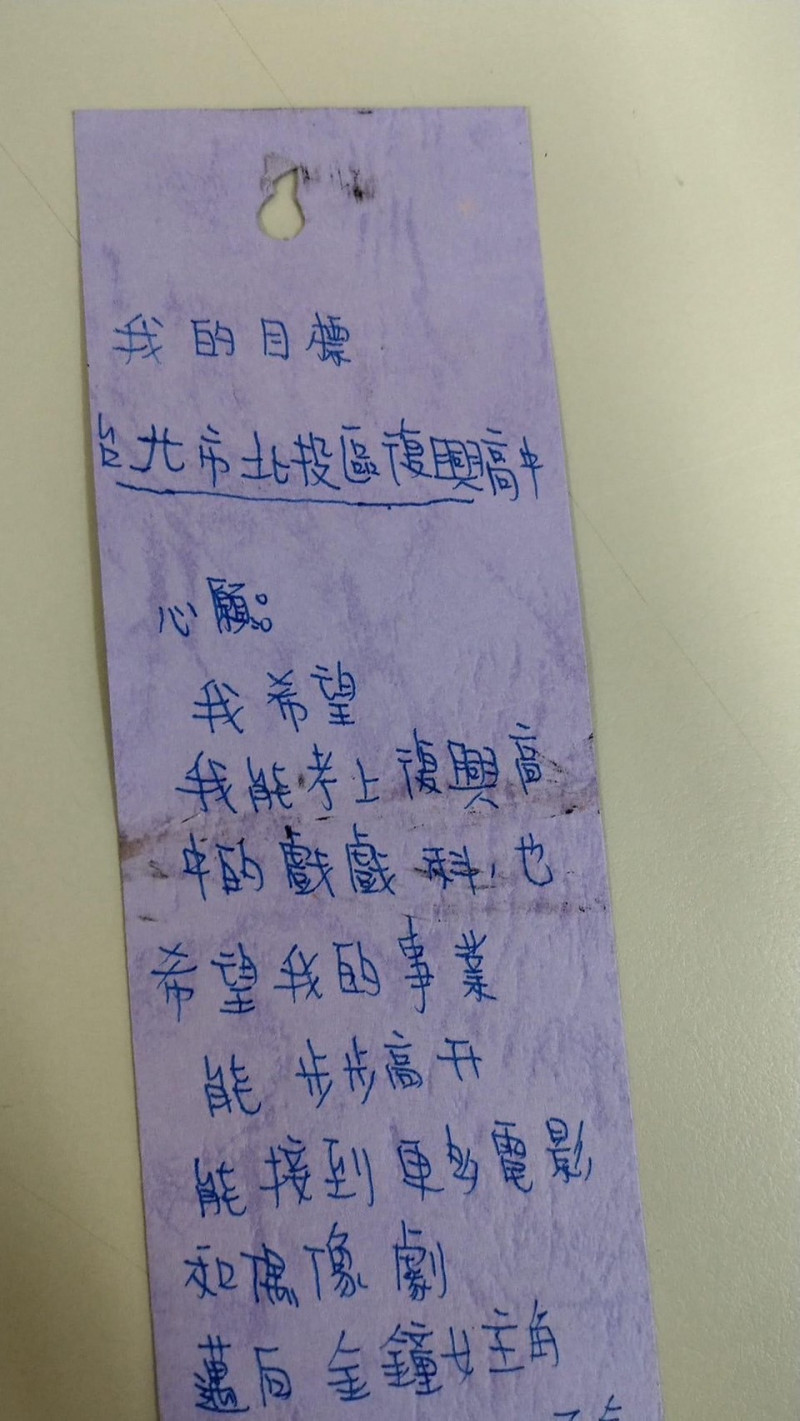 我的目標
台北市北投區復興高中
心願:
我希望
我能考上復興高
中的戲戲科,也
希望我的事業
能步步高升
能接到更多電影
和偶像劇
邁向金鐘女主角